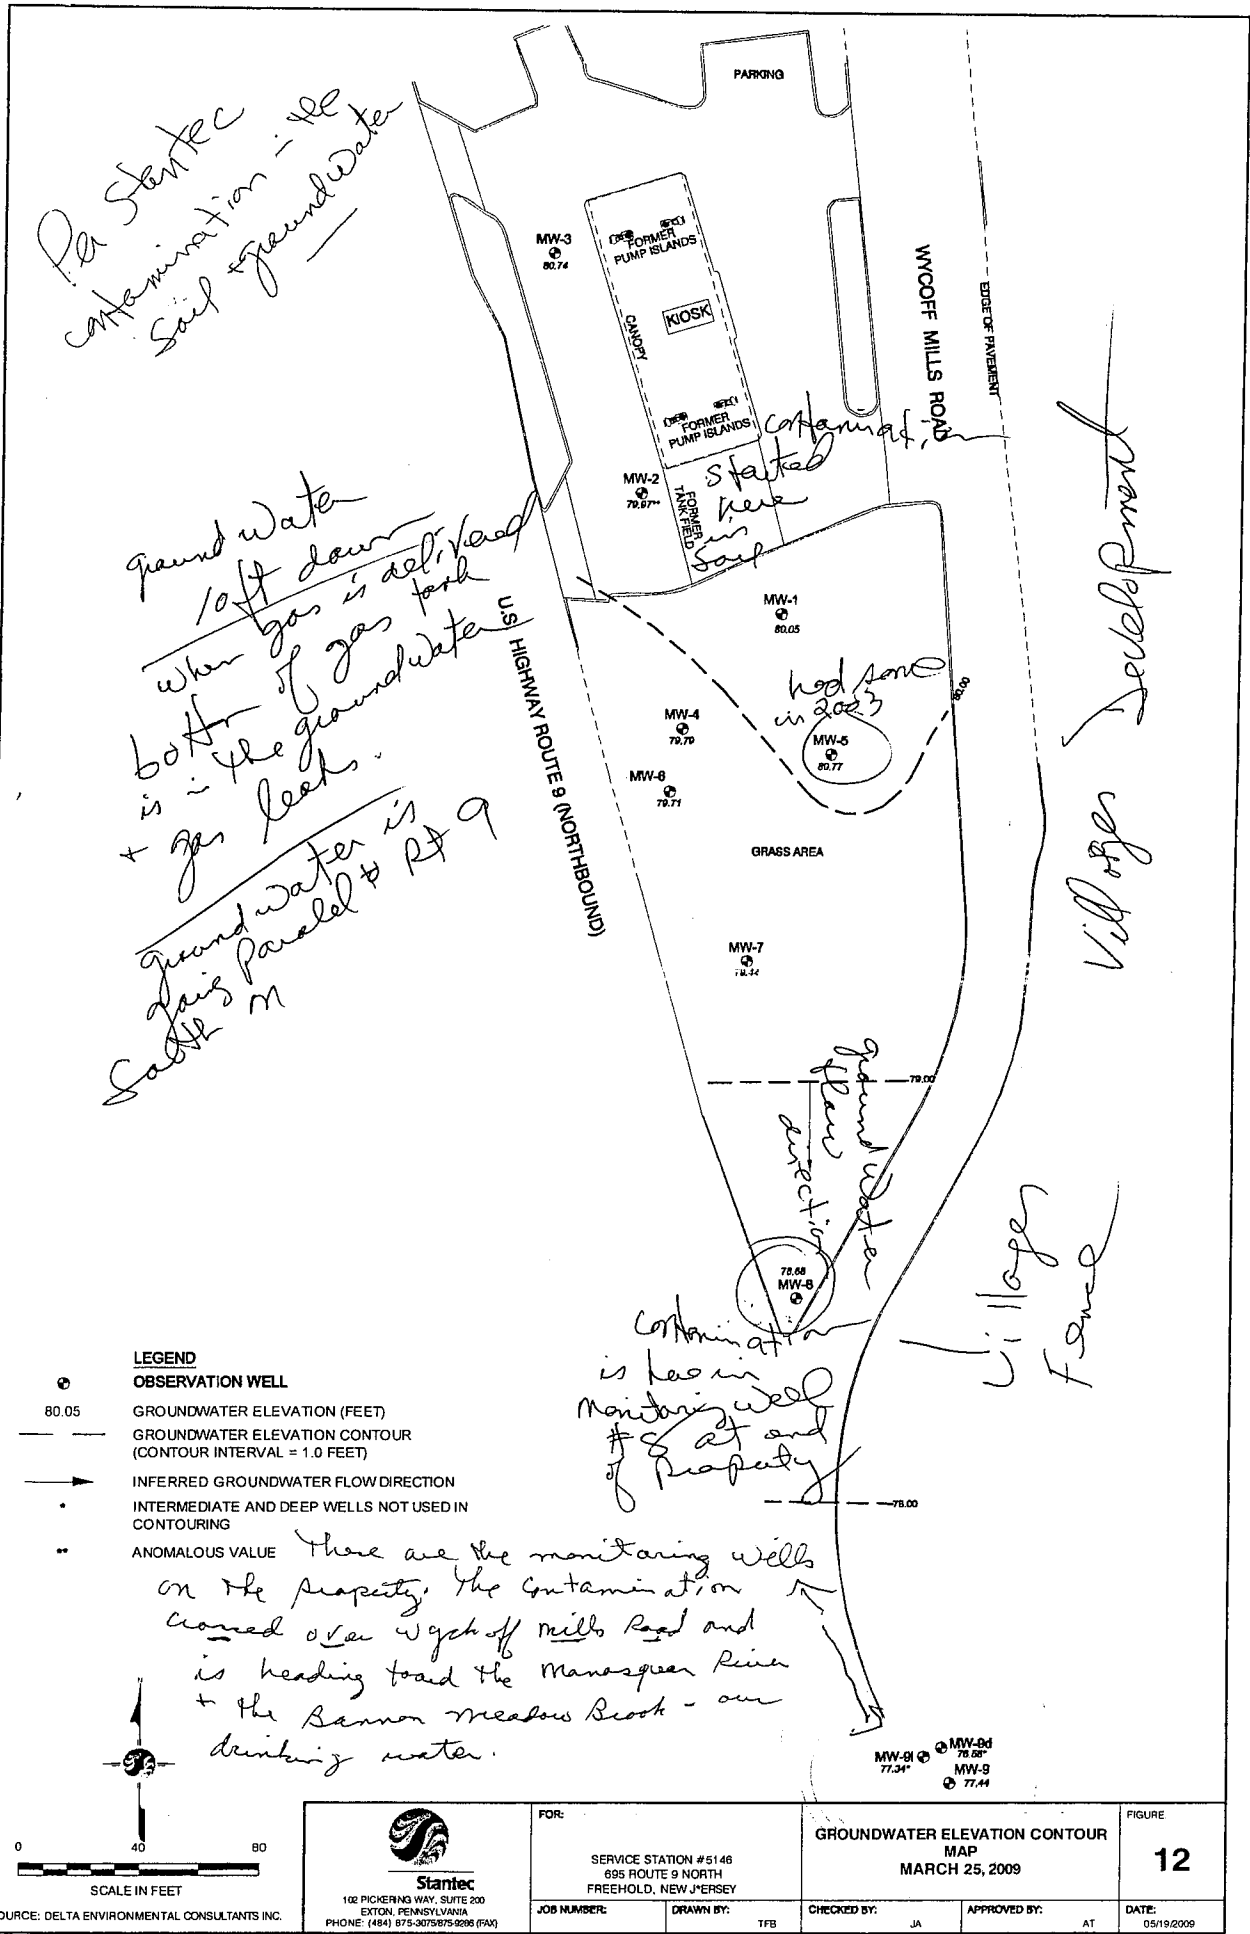 PARKING
Per Stantec
contamination in the
soil + groundwater
MW-3
80.74
FORMER
PUMP ISLANDS
KIOSK
CANOPY
WYCOFF MILLS ROAD
EDGE OF PAVEMENT
FORMER
PUMP ISLANDS
contamination
started
here
in
soil
MW-2
79.97**
FORMER
TANK FIELD
ground water
10 ft down
when gas is delivered
bottom of gas tank
is in the groundwater
+ gas leaks.
ground water is
going Paralel to Rt 9
South
U.S. HIGHWAY ROUTE 9 (NORTHBOUND)
MW-1
80.05
80.00
had some
in 2003
MW-4
79.79
MW-5
80.77
MW-6
79.71
GRASS AREA
Villages Development
MW-7
79.44
79.00
ground water
flow
direction
78.68
MW-8
Villages
Fence
contamination
is here in
monitoring well
#8 at end
of Property
78.00
LEGEND
OBSERVATION WELL
80.05 GROUNDWATER ELEVATION (FEET)
GROUNDWATER ELEVATION CONTOUR
(CONTOUR INTERVAL = 1.0 FEET)
INFERRED GROUNDWATER FLOW DIRECTION
* INTERMEDIATE AND DEEP WELLS NOT USED IN
CONTOURING
** ANOMALOUS VALUE
These are the monitoring wells
on the property. The contamination
crossed over Wyckoff Mills Road and
is heading toward the Manasquan River
+ the Bannon Meadow Brook - our
drinking water.
MW-9d
78.58*
MW-9I
77.34*
MW-9
77.44
0 40 80
SCALE IN FEET
OURCE: DELTA ENVIRONMENTAL CONSULTANTS INC.
Stantec
102 PICKERING WAY, SUITE 200
EXTON, PENNSYLVANIA
PHONE: (484) 875-3075/875-9286 (FAX)
FOR:
SERVICE STATION #5146
695 ROUTE 9 NORTH
FREEHOLD, NEW J*ERSEY
GROUNDWATER ELEVATION CONTOUR
MAP
MARCH 25, 2009
FIGURE
12
JOB NUMBER:
DRAWN BY:
TFB
CHECKED BY:
JA
APPROVED BY:
AT
DATE:
05/19/2009